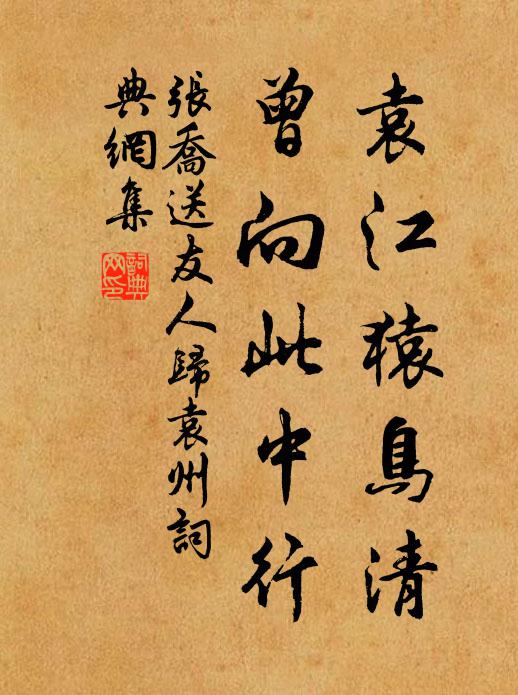 袁江猿鳥清
曾向此中行
張喬送友人歸袁州詞
典網集
詞典網印